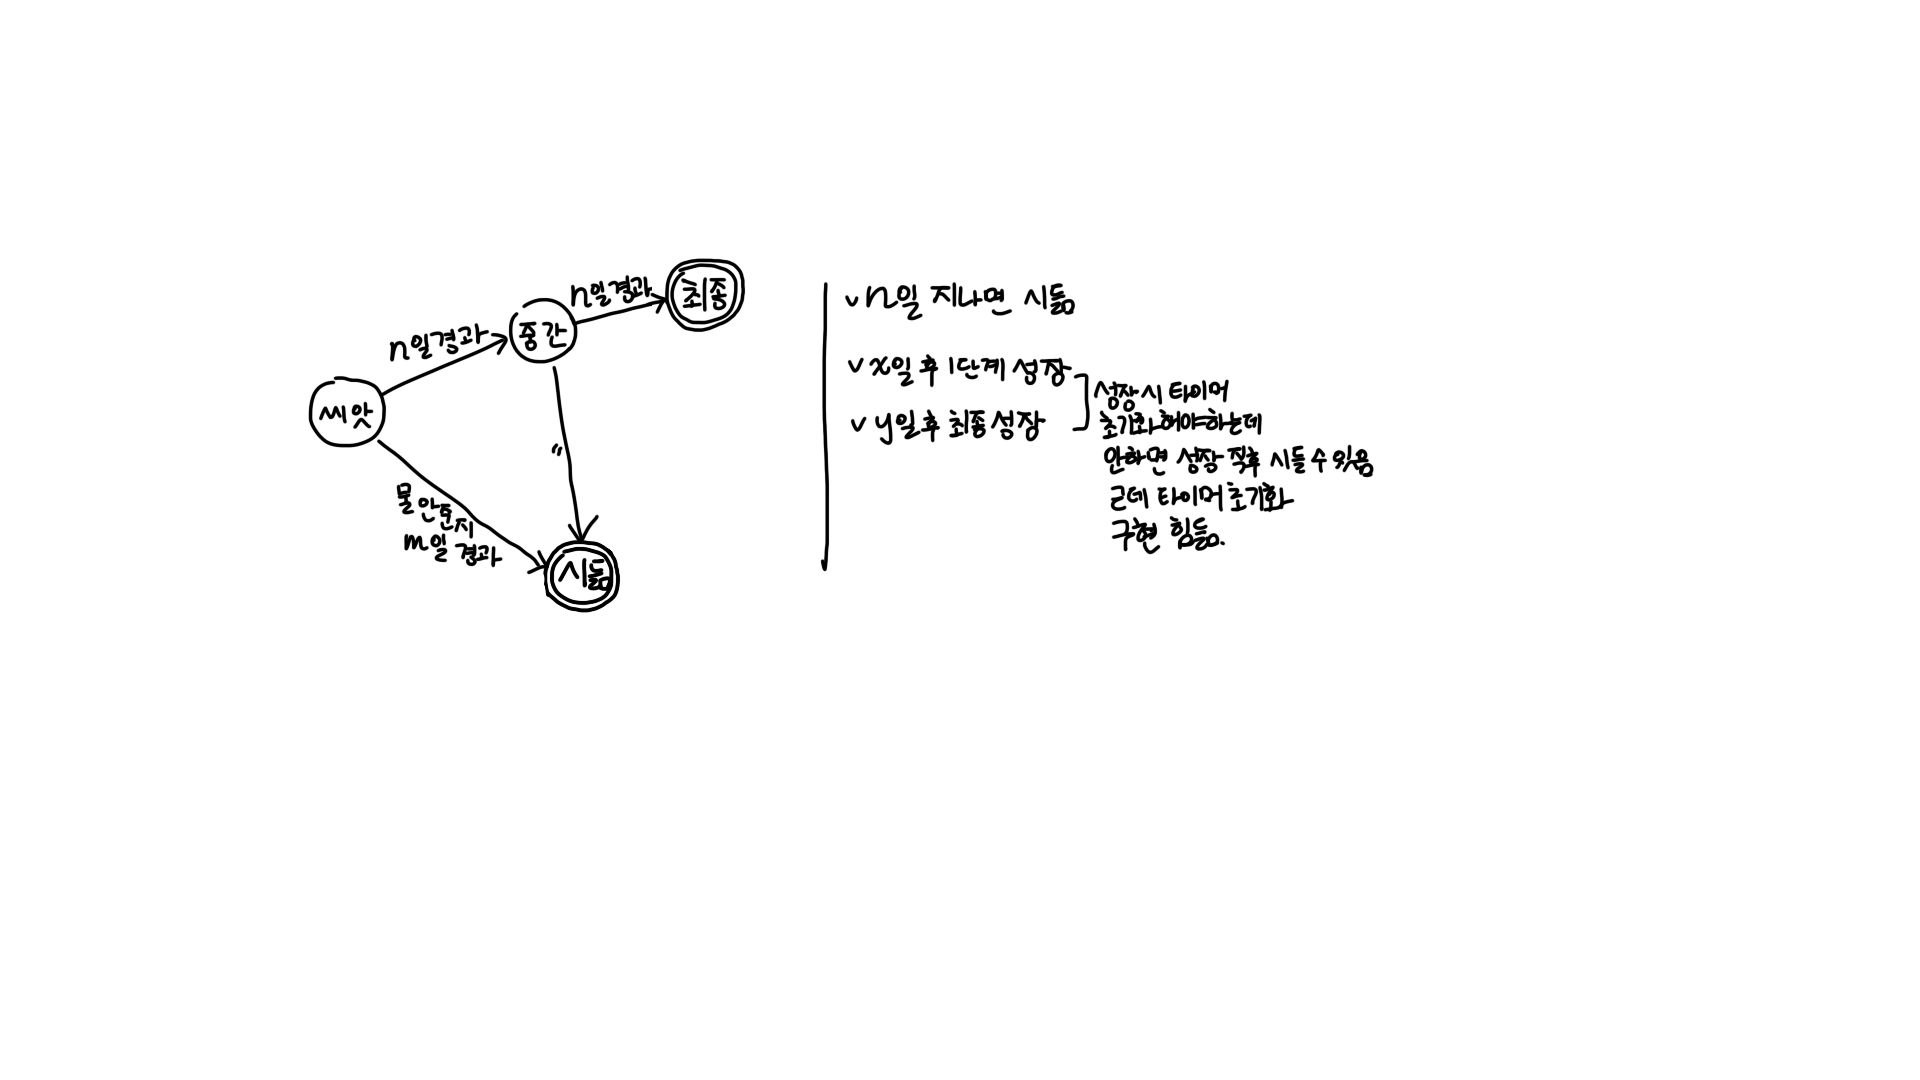 n일경과
최종
n일경과
중간
씨앗
〃
물 안준지
m일 경과
시듦
v n일 지나면 시듦
v x일 후 1단계 성장
v y일후 최종성장
성장시 타이머
초기화해야하는데
안하면 성장 직후 시들 수 있음
근데 타이머초기화
구현 힘듦.